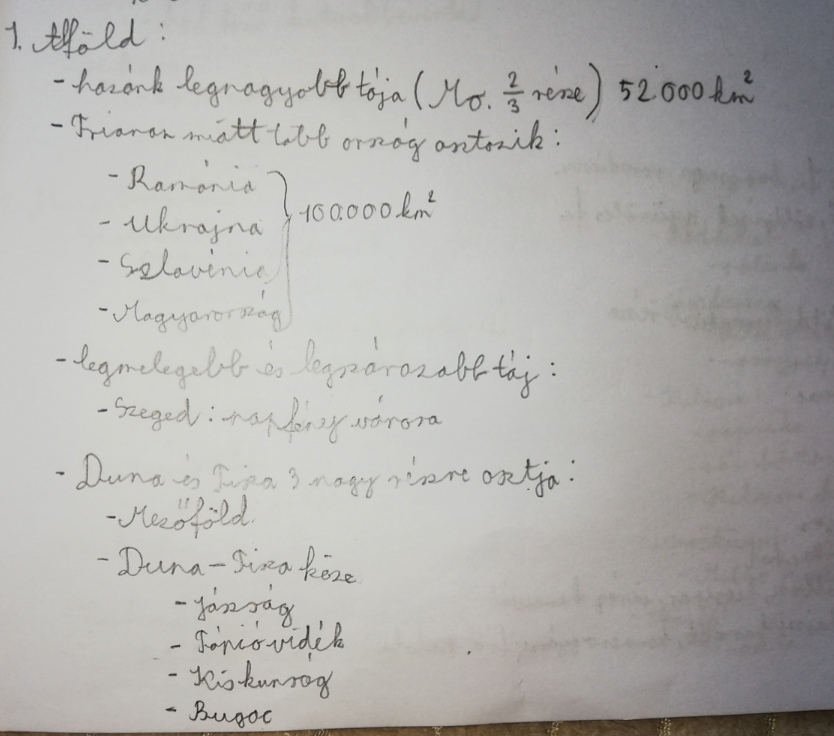 1. Alföld:
- hazánk legnagyobb tája (Mo. 2/3 része) 52.000 km²
- Trianon miatt több ország osztozik:
- Románia
- Ukrajna
- Szlovénia
- Magyarország
100.000 km²
- legmelegebb és legszárazabb táj:
- Szeged: napfény városa
- Duna és Tisza 3 nagy részre osztja:
- Mezőföld
- Duna-Tisza köze
- Jászság
- Tápióvidék
- Kiskunság
- Bugac